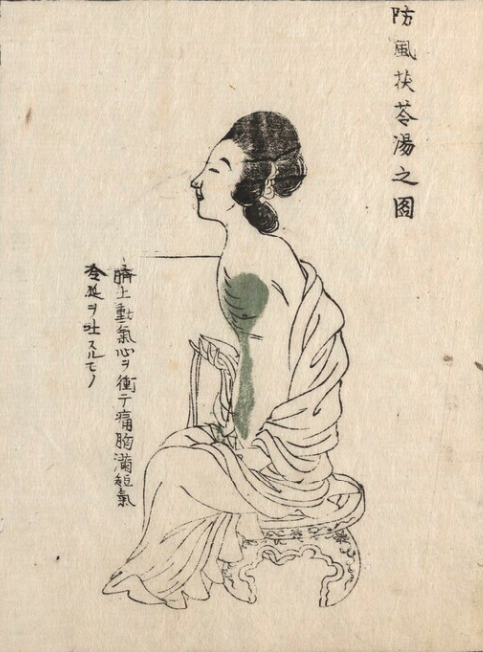 防風茯苓湯之圖
臍上動氣心ヲ衝テ痛胸滿短氣
冷涎ヲ吐スルモノ